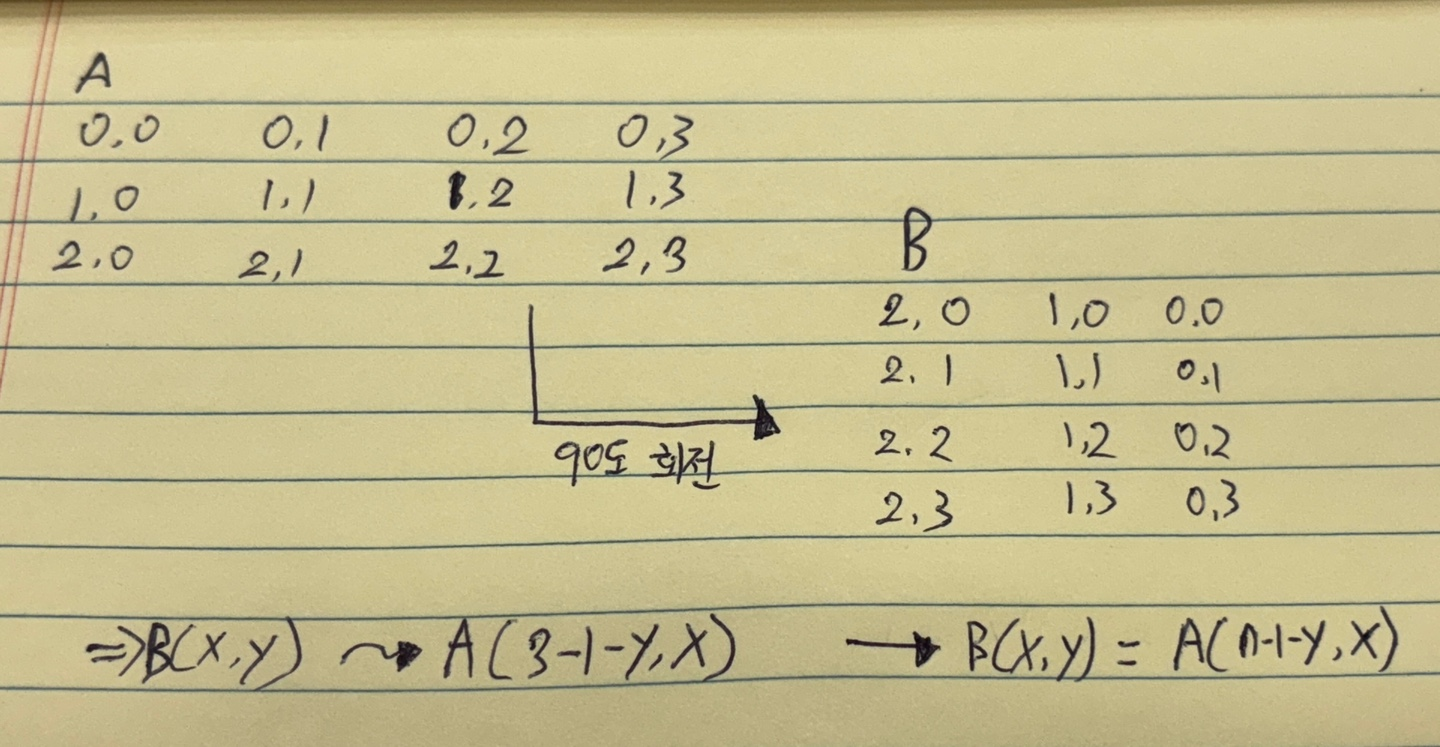 A
0.0 0.1 0.2 0,3
1.0 1.1 1.2 1.3
2.0 2,1 2,2 2,3
B
2,0 1,0 0.0
2.1 1,1 0,1
2.2 1,2 0,2
2,3 1,3 0,3
90도 회전
⇒B(X,y) ⤳ A(3-1-Y,X) → B(X,y) = A(n-1-Y,X)